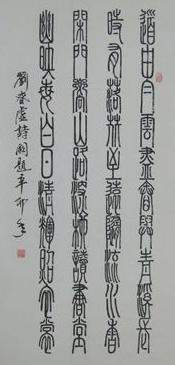 道由白雲盡春與青溪長
時有落花至遠隨流水香
閑門向山路深柳讀書堂
幽映每白日清輝照衣裳
劉眘虛詩闕題辛卯